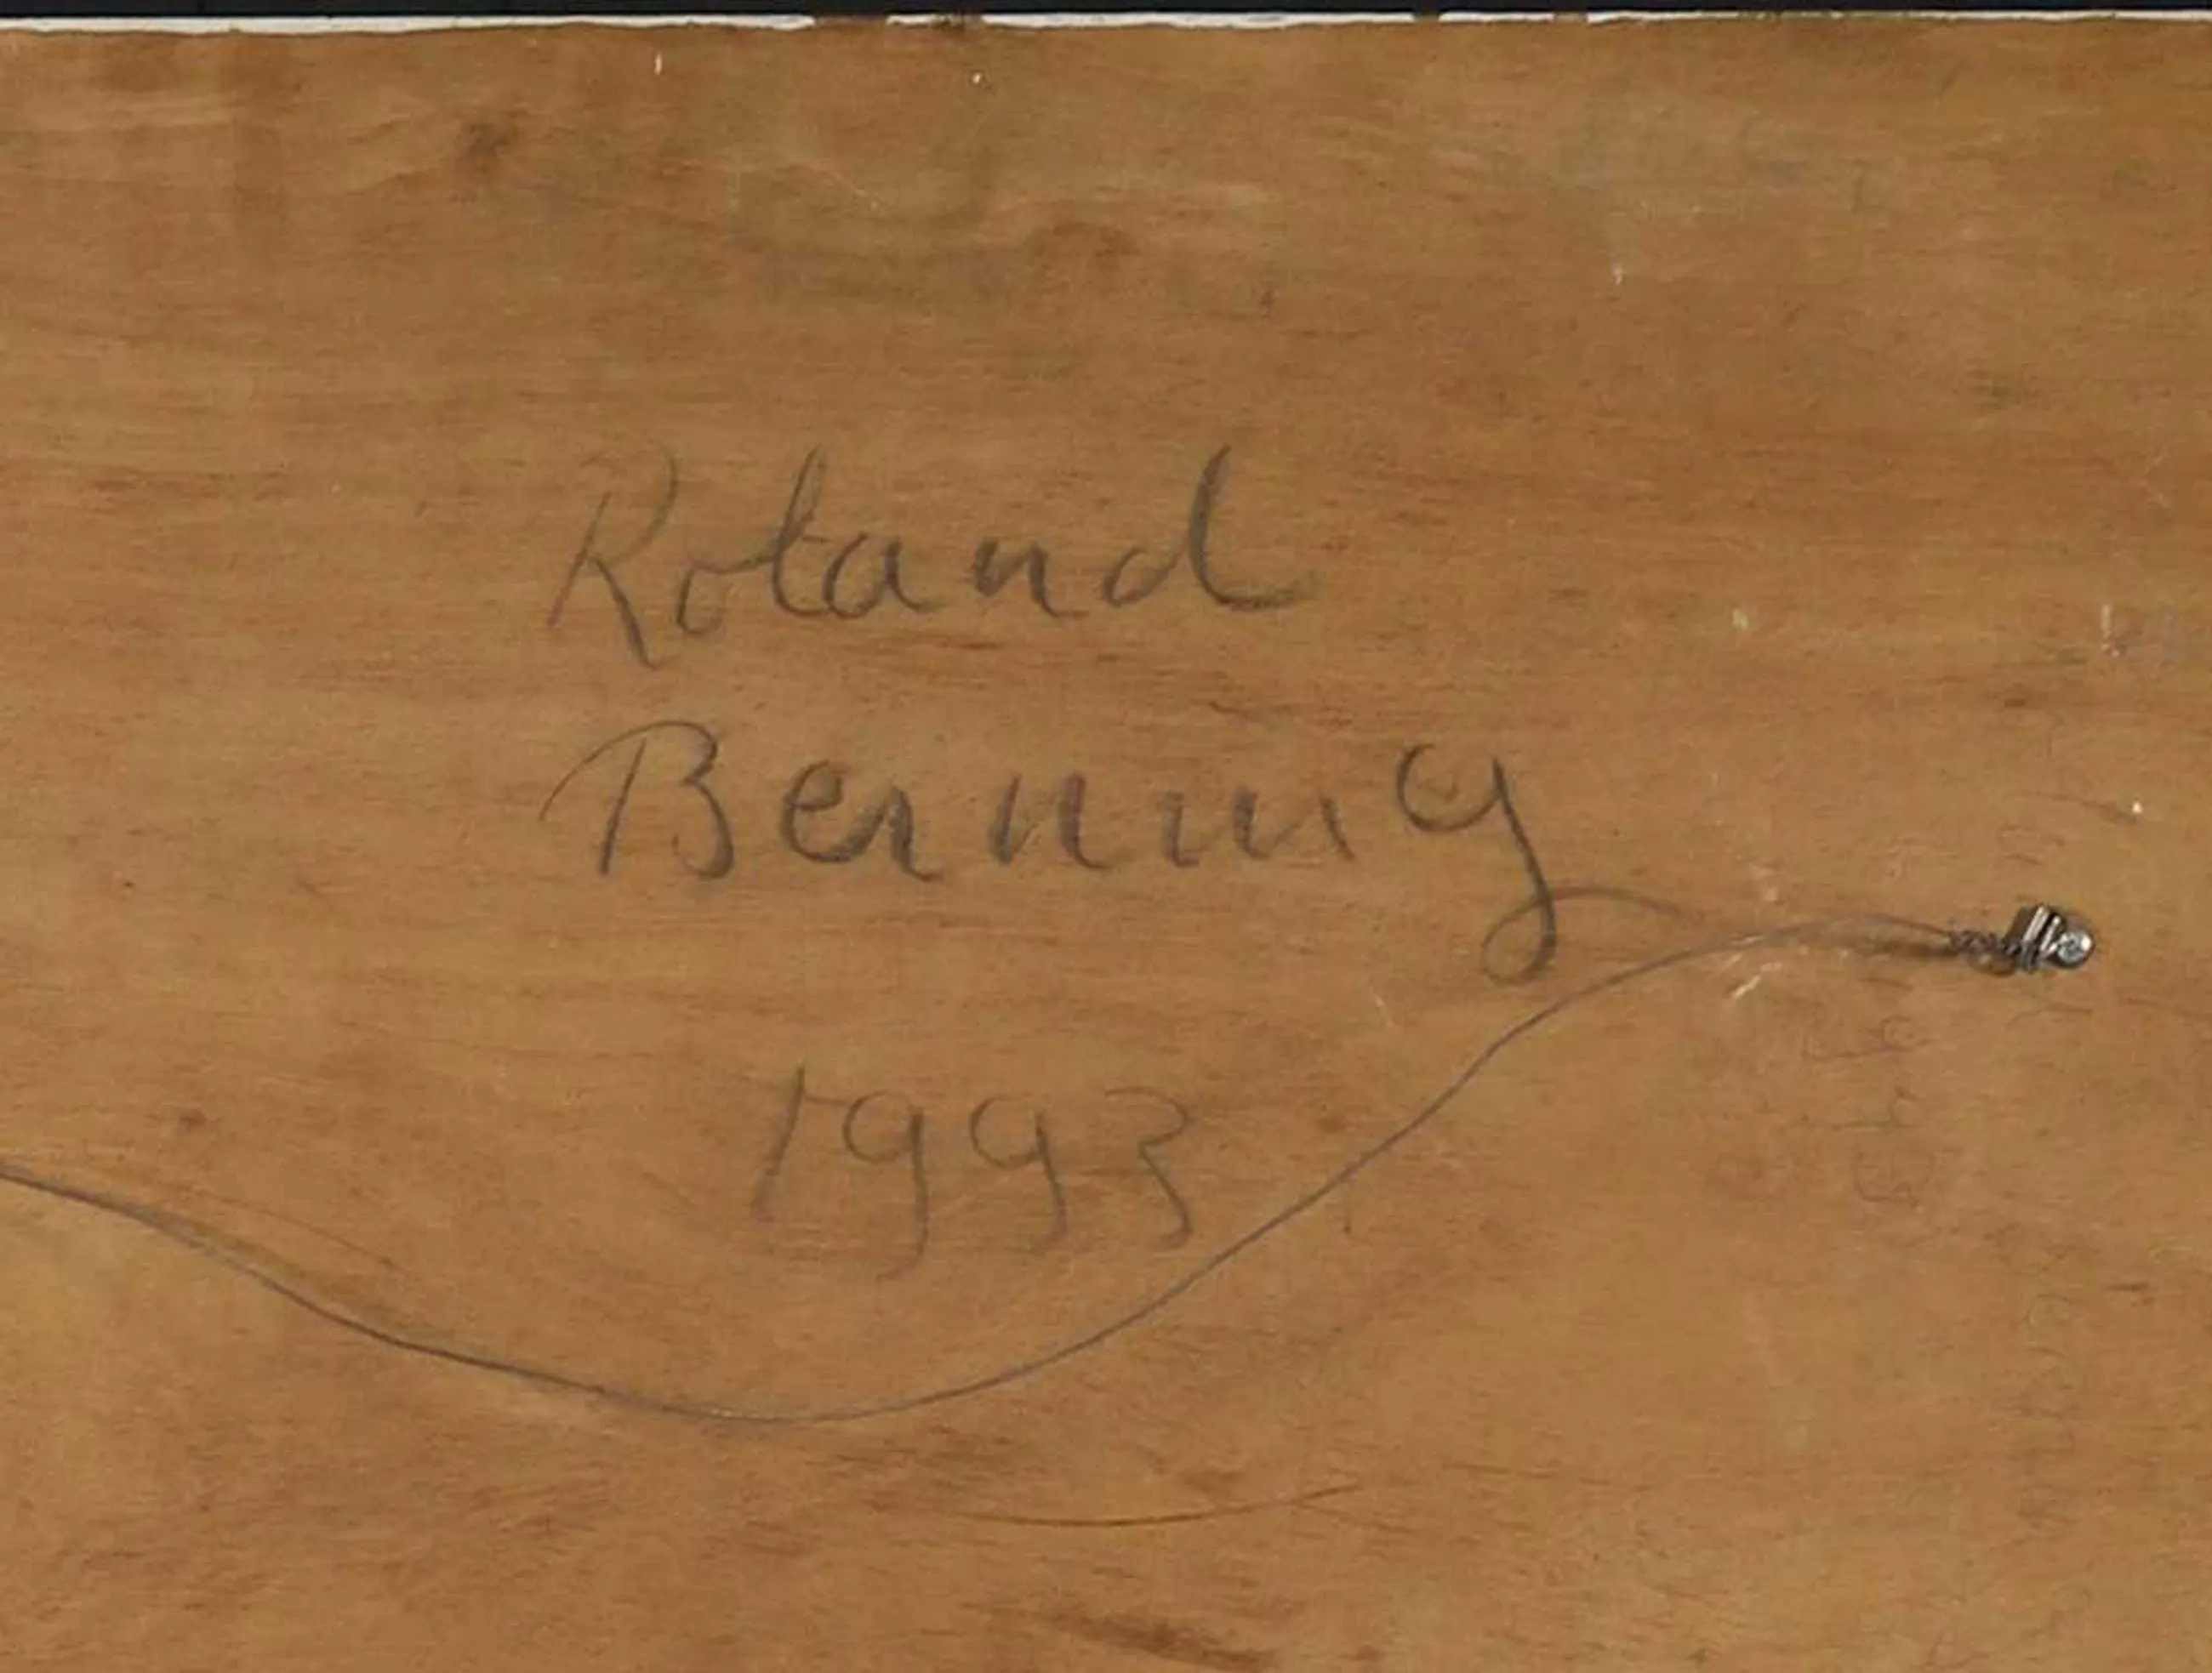 Roland
Berning
1993